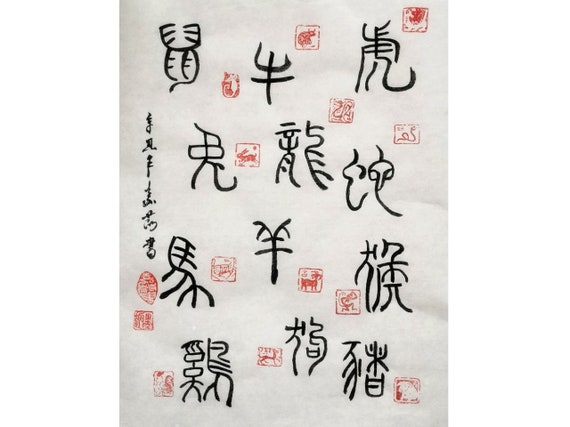 鼠牛虎
兔龍蛇
馬羊猴
鷄狗豬
辛丑年
書